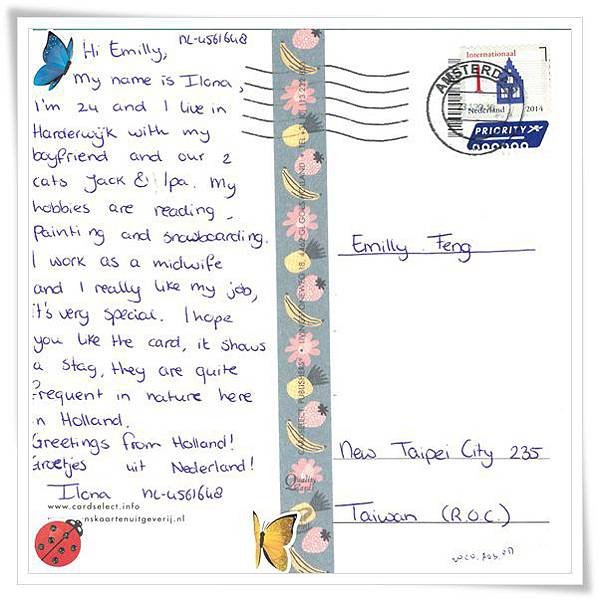 Hi Emilly,
NL-4561648
My name is Ilona,
I'm 24 and I live in
Harderwijk with my
boyfriend and our 2
cats Jack & Ipa. My
hobbies are reading,
Painting and snowboarding.
I work as a midwife
and I really like my job,
it's very special. I hope
you like the card, it shows
a stag, they are quite
frequent in nature here
in Holland.
Greetings from Holland!
Groetjes uit Nederland!
Ilona NL-4561648
www.cardselect.info
nskaartenuitgeverij.nl
Quality
Cards
Internationaal
1
Nederland 2014
AMSTERD
PRIORITY
Emilly Feng
New Taipei City 235
Taiwan (R.O.C.)